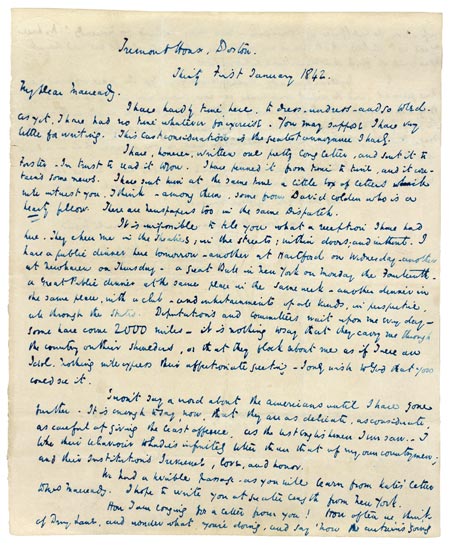 Tremont House, Boston.
Thirty First January 1842.
My Dear Macready.
I have hardly time here, to dress—undress—and go to bed.
As yet, I have had no time whatever for exercise. You may suppose I have very
little for writing. This last consideration is the greatest annoyance I have.
I have, however, written one pretty long letter, and sent it to
Forster. In trust to read it to you. I have penned it from time to time, and it con-
tains some news. I have sent him at the same time a little box of letters
will interest you, I think - among them, some from David Colden who is a
hearty fellow. There are newspapers too in the same Dispatch.
It is impossible to tell you what a reception I have had
here. They cheer me in the Theatres; in the streets; within doors; and without. I
have a public dinner here tomorrow - another at Hartford on Wednesday - another
at Newhaven on Thursday - a Great Ball in New York on Monday the Fourteenth -
a Great Public dinner at the same place in the same week - another dinner in
the same place, with a club - and entertainments of all kinds, in perspective,
all through the States. Deputations and Committees wait upon me every day -
some have come 2000 miles - it is nothing to say that they carry me through
the country on their shoulders, or that they flock about me as if I were an
Idol. Nothing will express their affectionate greeting. I only wish to God that you
could see it.
I won't say a word about the Americans until I have gone
further. It is enough to say, now, that they are as delicate, as considerate,
as careful of giving the least offence, as the best Englishmen I ever saw. - I
like their behaviour to Ladies infinitely better than that of my own countrymen;
and their Institutions I reverence, love, and honor.
We had a terrible passage - as you will learn from Kate's letter
to Mrs Macready. I hope to write you at greater length from New York.
How I am longing for a letter from you! How often we think
of Drury Lane, and wonder what you're doing, and say "now the curtain's going